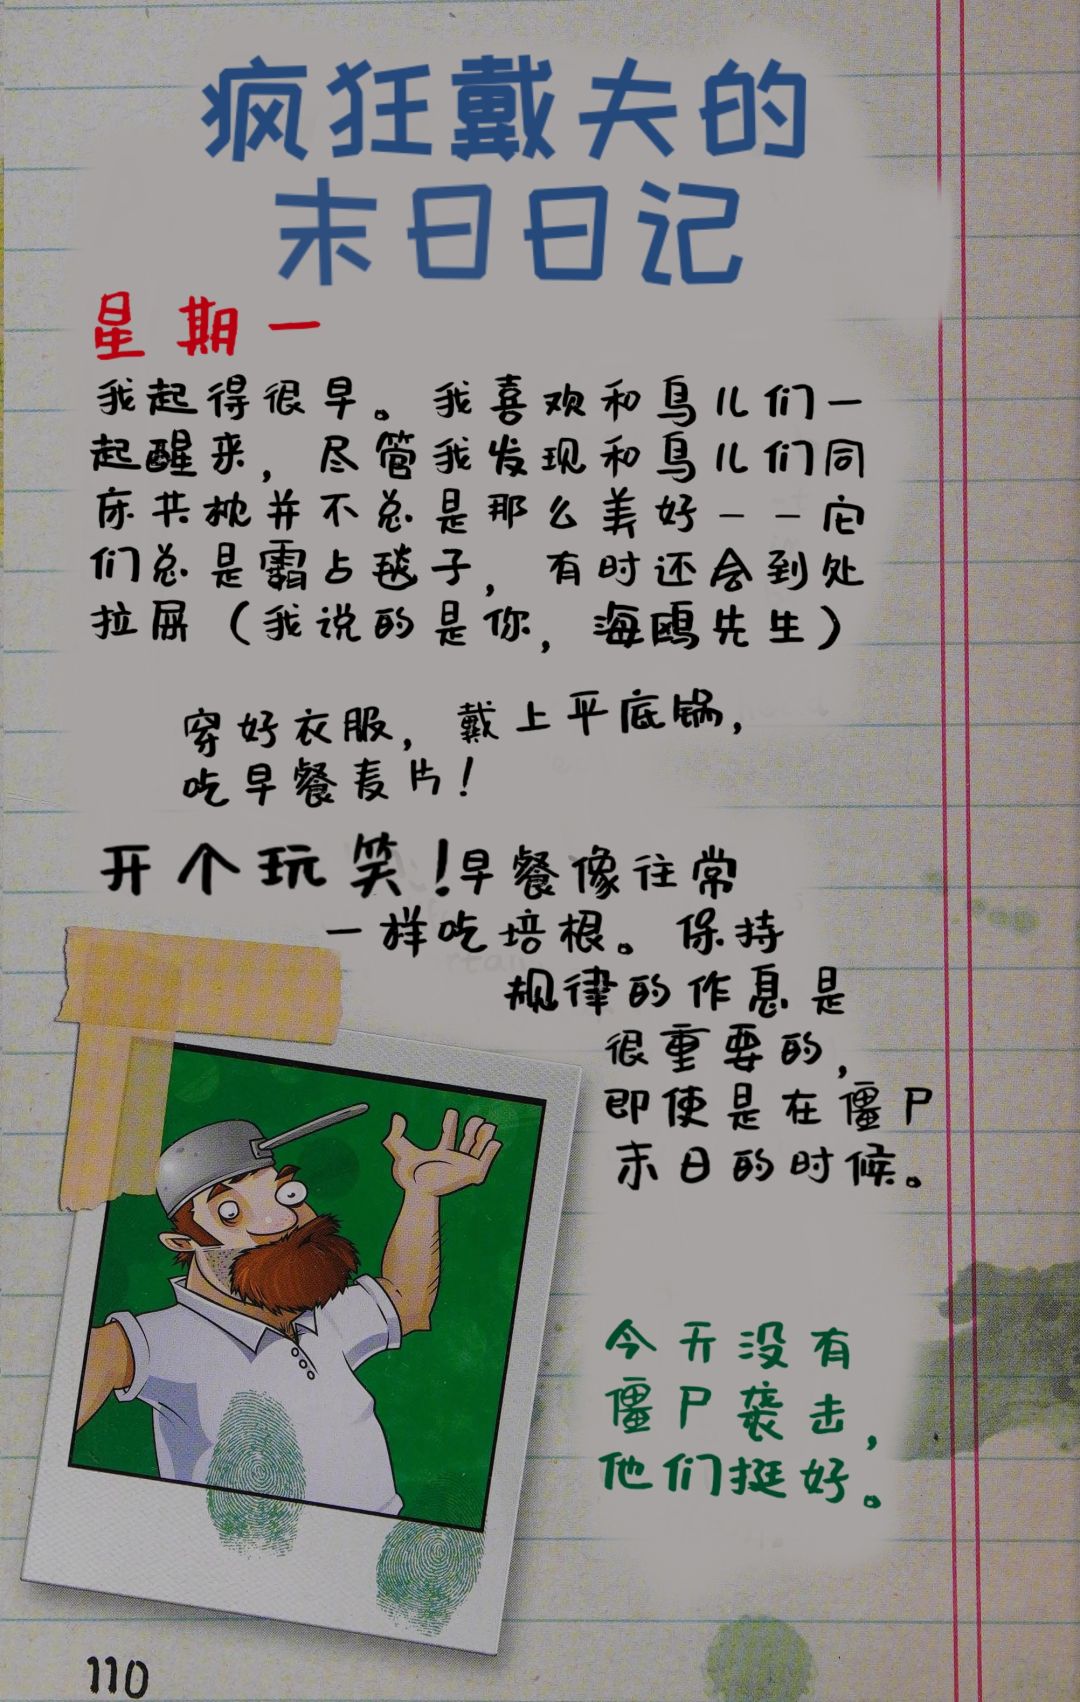 疯狂戴夫的
末日日记
星期一
我起得很早。我喜欢和鸟儿们一
起醒来，尽管我发现和鸟儿们同
床共枕并不总是那么美好－－它
们总是霸占毯子，有时还会到处
拉屎（我说的是你，海鸥先生）
穿好衣服，戴上平底锅，
吃早餐麦片！
开个玩笑！早餐像往常
一样吃培根。保持
规律的作息是
很重要的，
即使是在僵尸
末日的时候。
今天没有
僵尸袭击，
他们挺好。
110